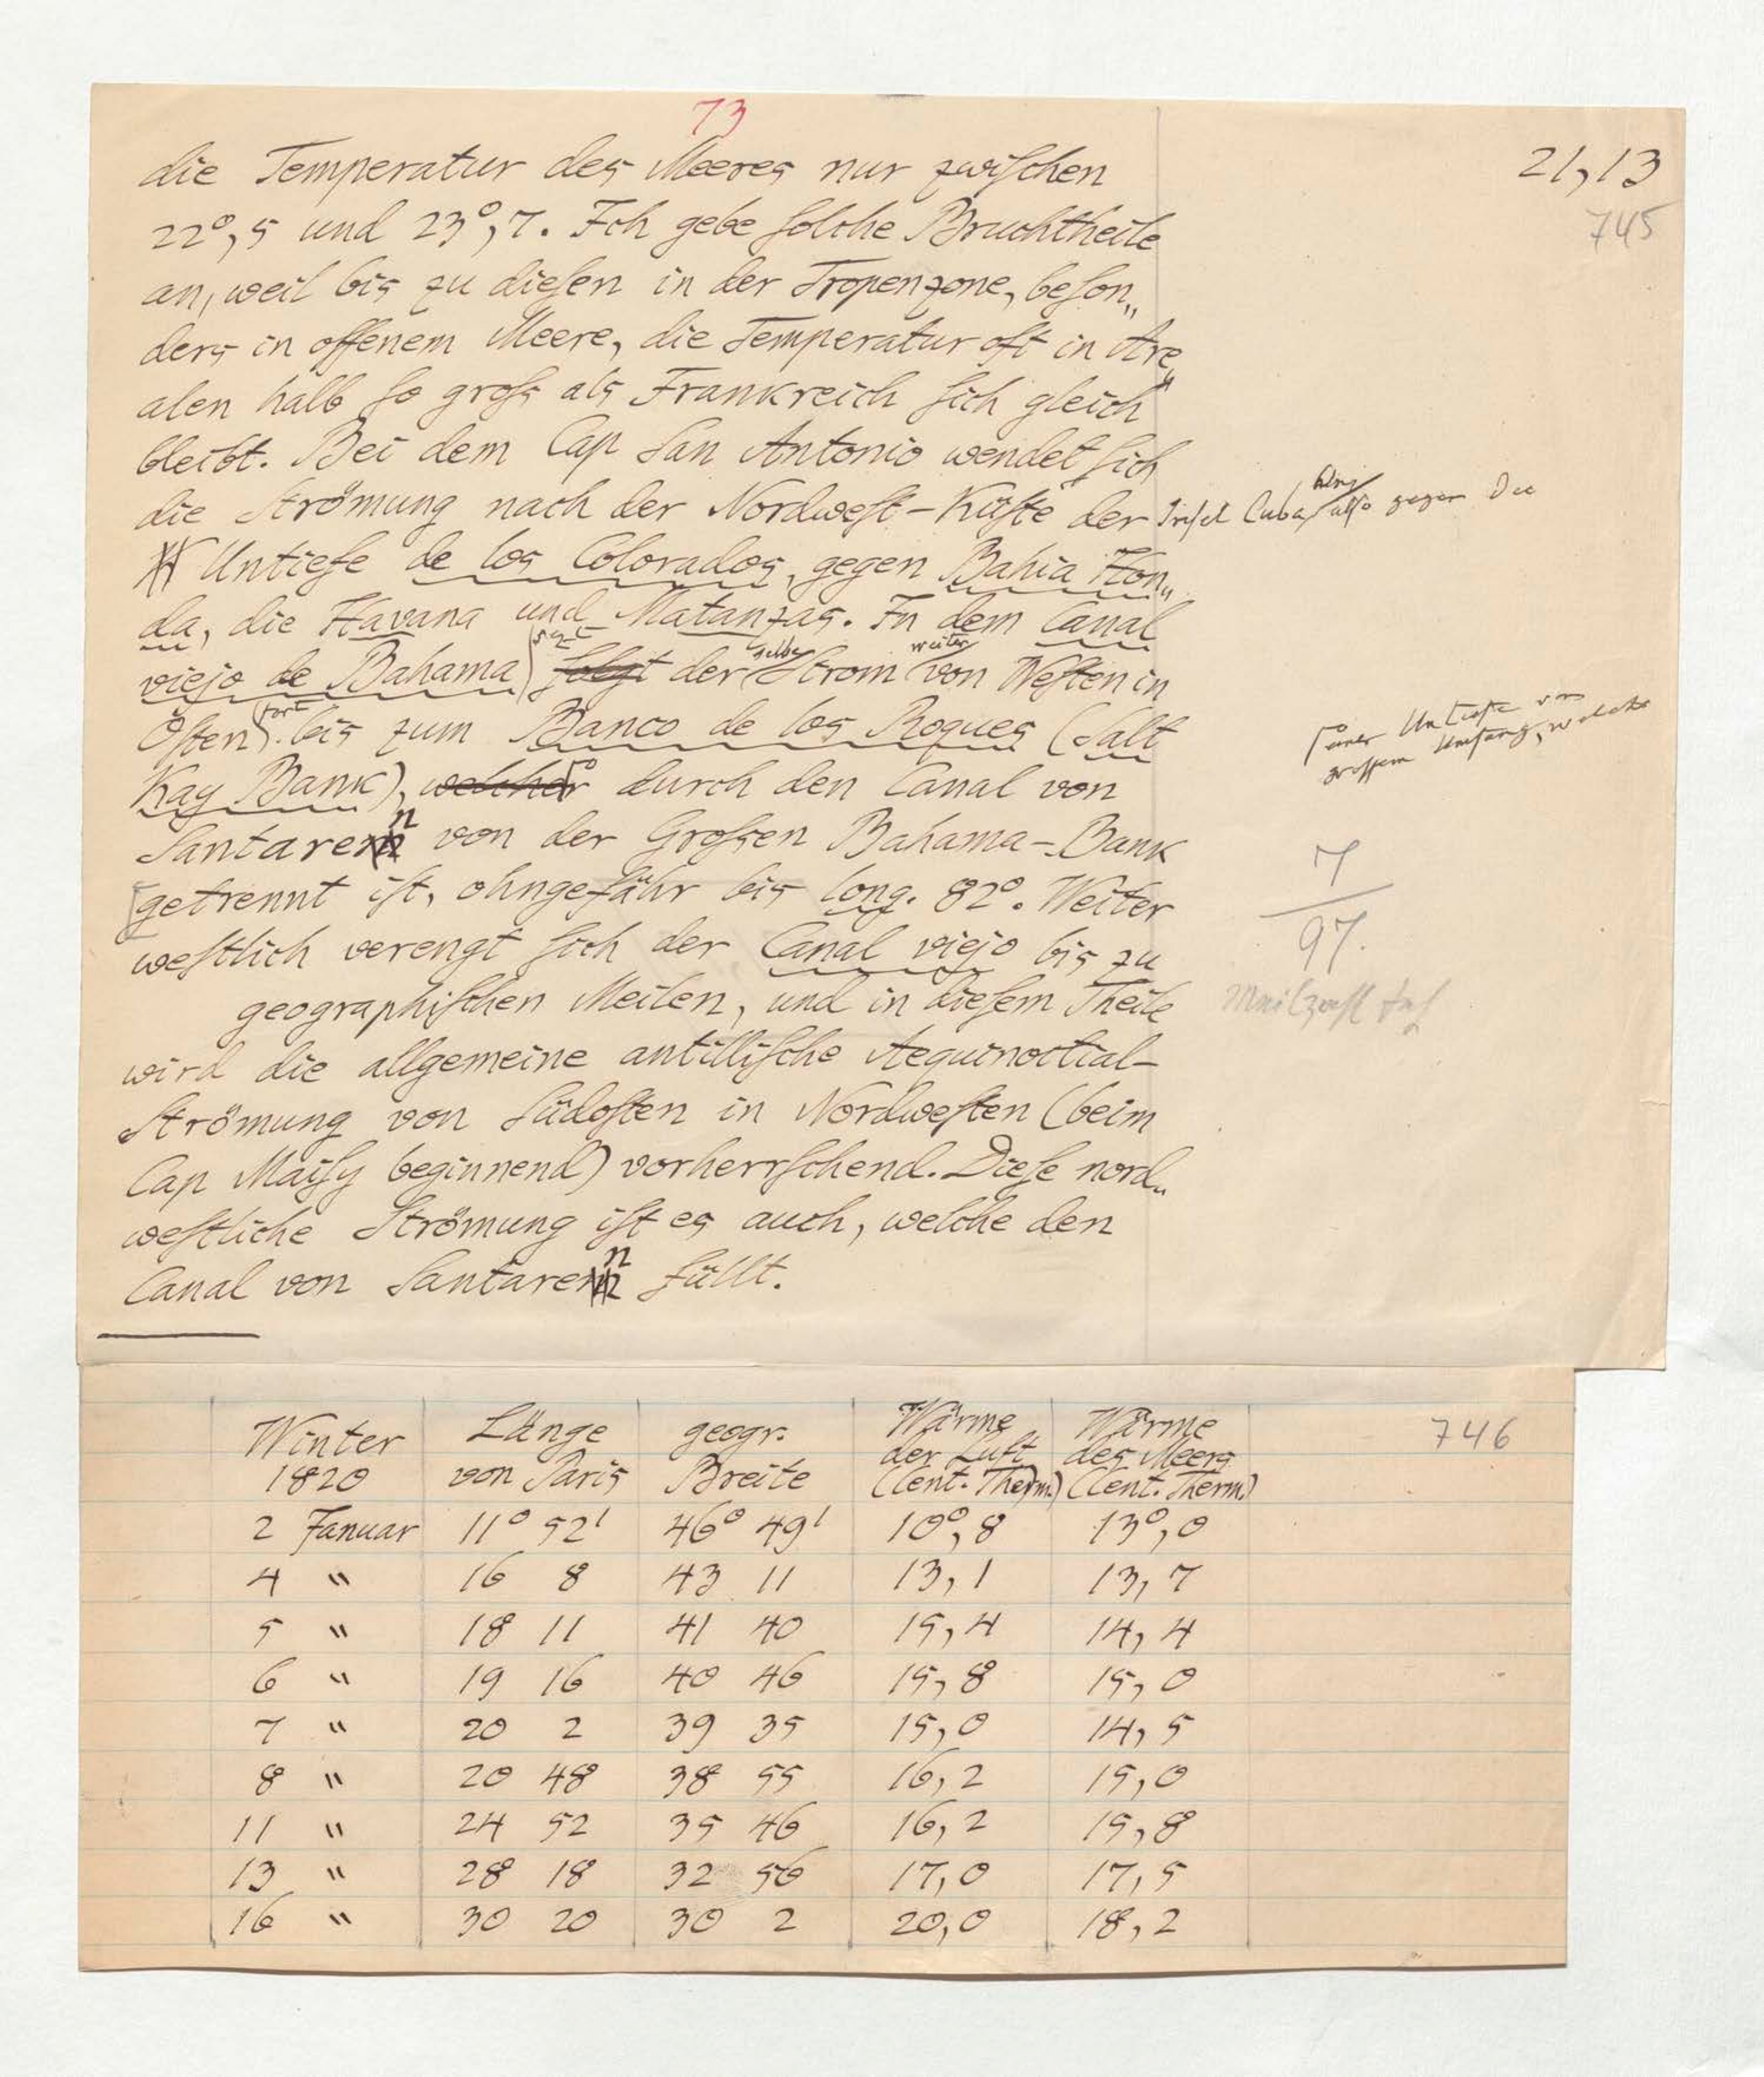 73
21,13
745
die Temperatur des Meeres nur zwischen
22°,5 und 23°,7. Ich gebe solche Bruchtheile
an, weil bis zu diesen in der Tropenzone, beson„
ders in offenem Meere, die Temperatur oft in Are„
alen halb so gross als Frankreich sich gleich
bleibt. Bei dem Cap San Antonio wendet sich
die Strömung nach der Nordwest-Küste der Insel Cuba, also gegen die
Untiefe de los Colorados, gegen Bahia Hon„
da, die Havana und Matanzas. In dem Canal
viejo de Bahama setzt folgt der selbe Strom weiter von Westen in
Osten fort bis zum Banco de los Roques (Salt
einer Untiefe von
grossem Umfang, welche
Kay Bank), welcher durch den Canal von
Santaren von der Grossen Bahama-Bank
getrennt ist, ohngefähr bis long. 82°. Weiter
westlich verengt sich der Canal viejo bis zu
7
97.
geographischen Meilen, und in diesem Theile
wird die allgemeine antillische Aequinoctial-
Strömung von Südosten in Nordwesten (beim
Cap Maisy beginnend) vorherrschend. Diese nord„
westliche Strömung ist es auch, welche den
Canal von Santaren füllt.
746
Winter 1820 Länge von Paris geogr. Breite Wärme der Luft (Cent. Therm.) Wärme des Meers (Cent. Therm.)
2 Januar 11° 52' 46° 49' 10°,8 13°,0
4 " 16 8 43 11 13,1 13,7
5 " 18 11 41 40 15,4 14,4
6 " 19 16 40 46 15,8 15,0
7 " 20 2 39 35 15,0 14,5
8 " 20 48 38 55 16,2 15,0
11 " 24 52 35 46 16,2 15,8
13 " 28 18 32 56 17,0 17,5
16 " 30 20 30 2 20,0 18,2